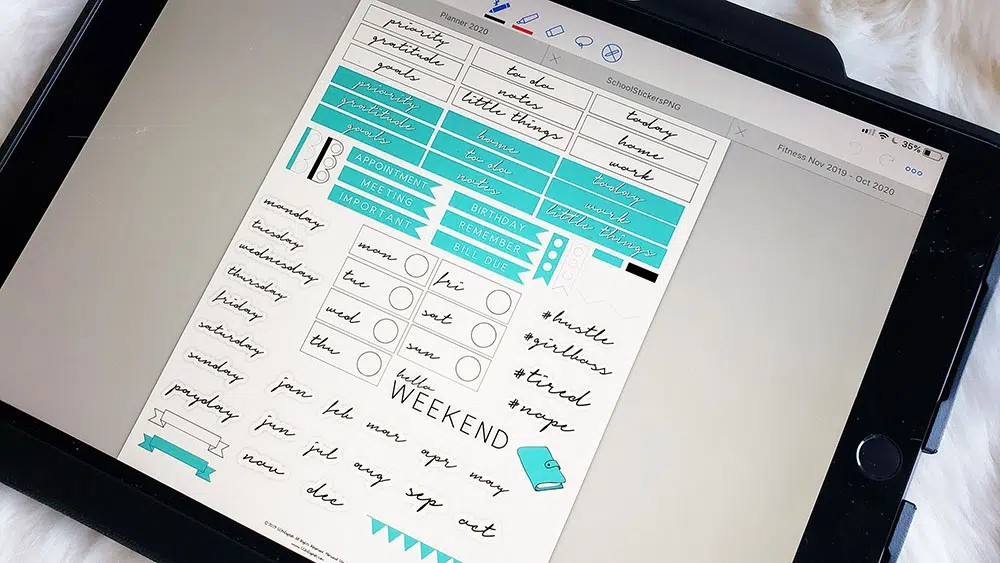 Planner 2020
SchoolStickersPNG
35%
Fitness Nov 2019 - Oct 2020
priority
gratitude
goals
to do
notes
little things
today
home
work
priority
gratitude
goals
home
to do
notes
today
work
little things
APPOINTMENT
MEETING
IMPORTANT
BIRTHDAY
REMEMBER
BILL DUE
monday
tuesday
wednesday
thursday
friday
saturday
sunday
payday
mon
tue
wed
thu
fri
sat
sun
#hustle
#girlboss
#tired
#nope
hello
WEEKEND
jan
feb
mar
apr
may
jun
jul
aug
sep
oct
nov
dec